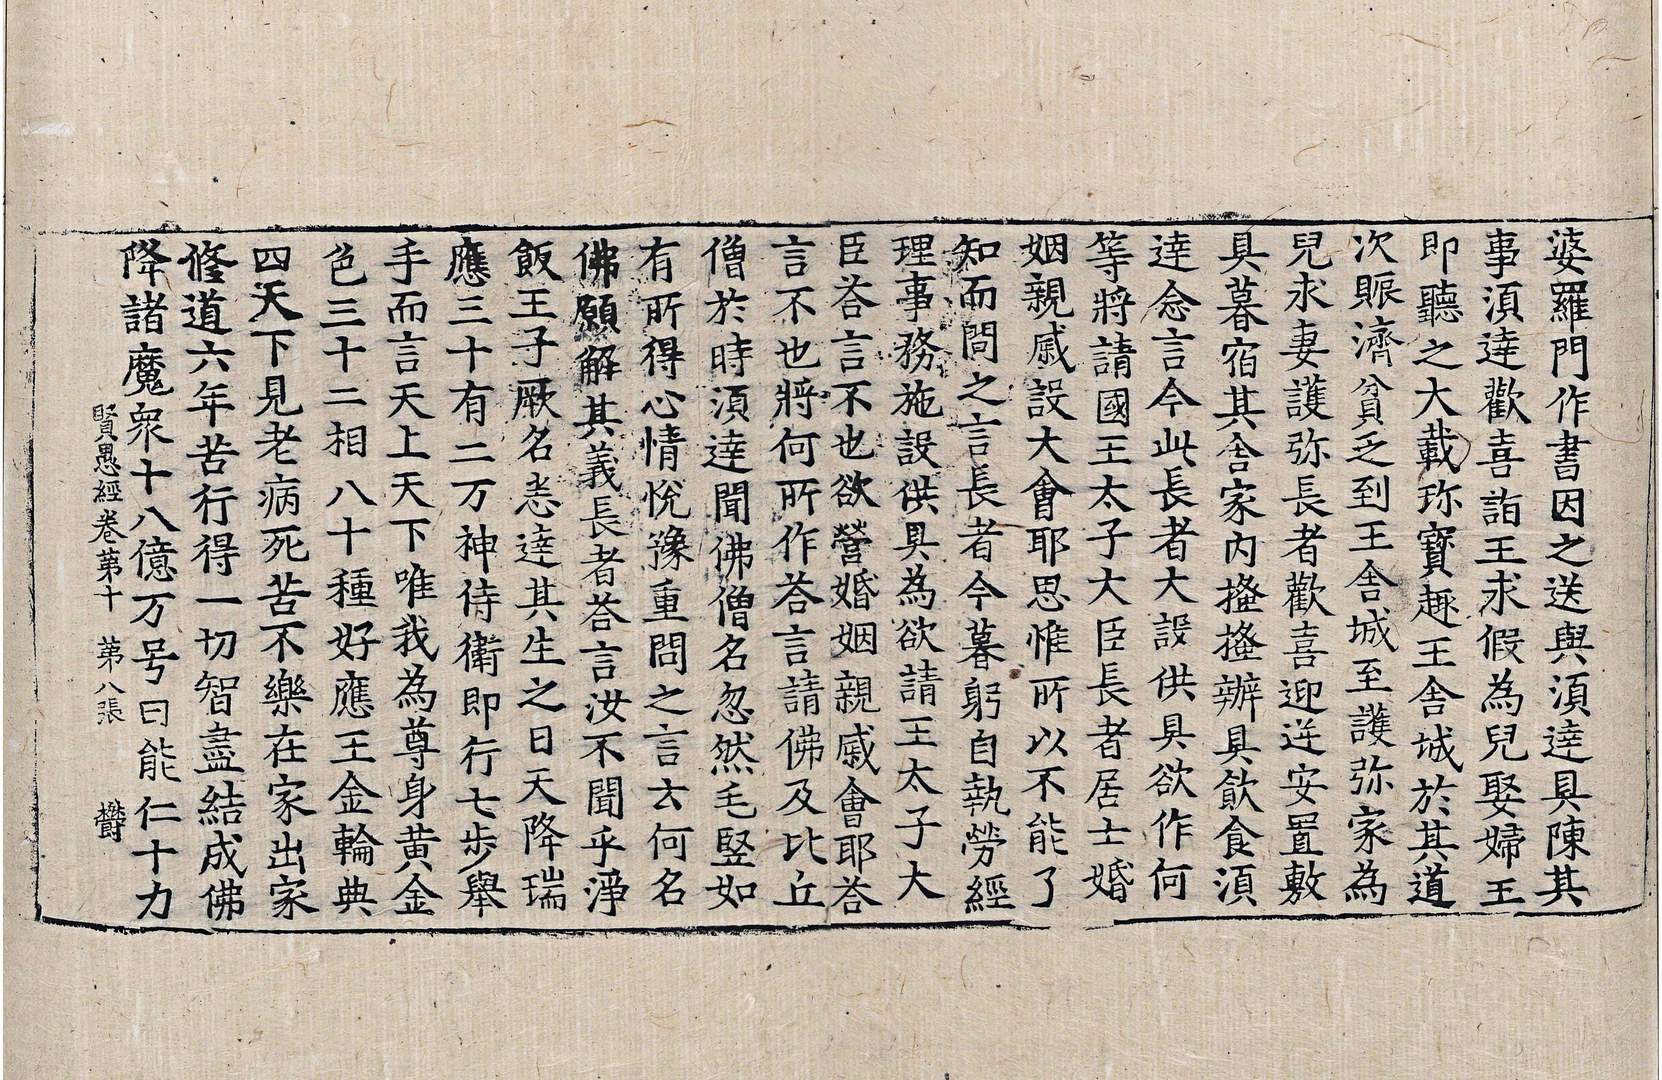 婆羅門作書因之送與湏達具陳其
事湏達歡喜詣王求假為兒娶婦王
即聽之大載珎寶趣王舍城於其道
次賑濟貧乏到王舍城至護弥家為
兒求妻護弥長者歡喜迎逆安置敷
具暮宿其舍家内搔搔辦具飲食湏
達念言今此長者大設供具欲作何
等將請國王太子大臣長者居士婚
姻親戚設大會耶思惟所以不能了
知而問之言長者今暮躬自執勞經
理事務施設供具為欲請王太子大
臣荅言不也欲營婚姻親戚會耶荅
言不也將何所作荅言請佛及比丘
僧於時湏達聞佛僧名忽然毛竪如
有所得心情悅豫重問之言云何名
佛願解其義長者荅言汝不聞乎淨
飯王子厥名悉達其生之日天降瑞
應三十有二万神侍衛即行七步舉
手而言天上天下唯我為尊身黄金
色三十二相八十種好應王金輪典
四天下見老病死苦不樂在家出家
修道六年苦行得一切智盡結成佛
降諸魔衆十八億万号曰能仁十力
賢愚經卷苐十 苐八張 欝